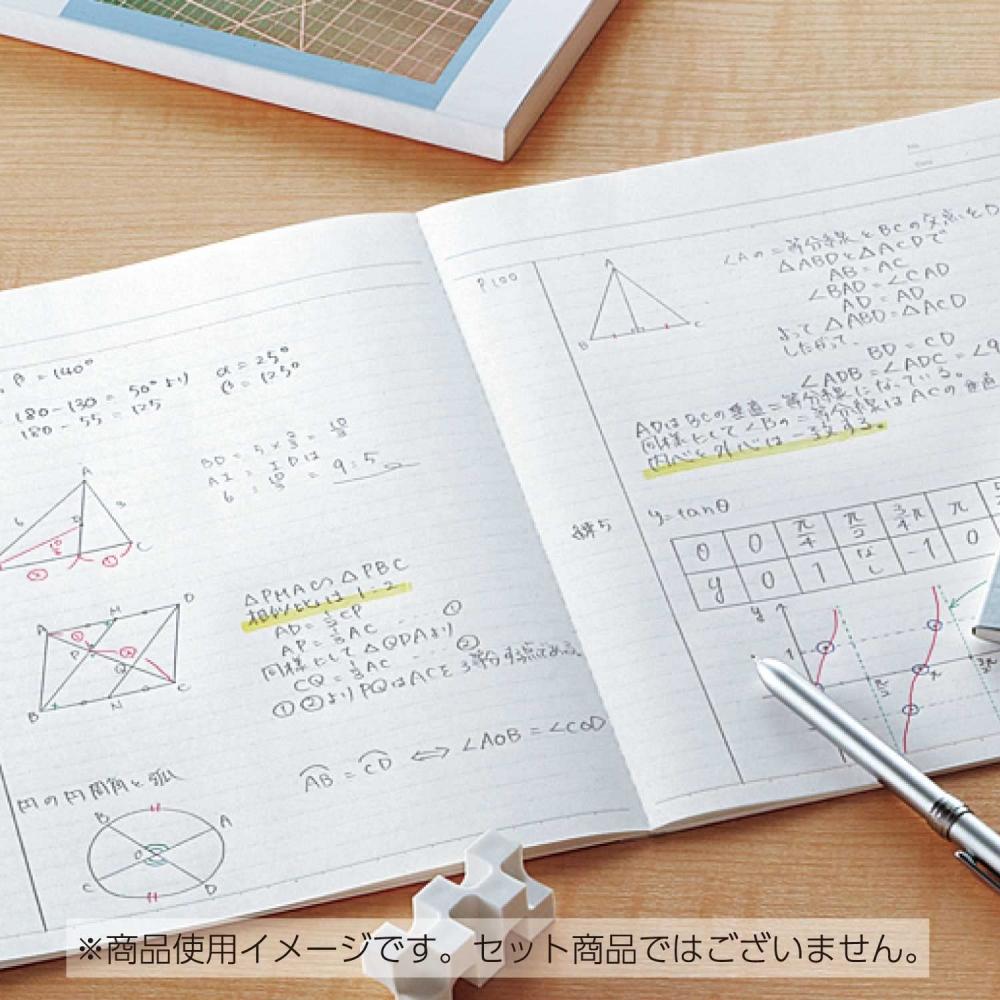 β = 140°
180-130 = 50°より
180 - 55 = 125
α = 25°
β = 125°
BD = 5 ×
AI : ID は
= 9:5
A
6
3
C
△PMA ∽ △PBC
相似比は 1:2
AP = AC
同様にして △QDAより
CQ = 1/3 AC ②
①②よりPQはACを3等分する点である。
A
M
D
P
Q
B
N
C
円の円周角と弧
AB = CD ⟺ ∠AOB = ∠COD
B
A
O
C
D
No.
Date
P100
A
B
C
∠Aの二等分線とBCの交点をD
△ABDと△ACDで
AB = AC
∠BAD = ∠CAD
AD = AD
よって △ABD = △ACD
したがって、
BD = CD
∠ADB = ∠ADC = ∠9
ADはBCの垂直二等分線になっている。
同様にして∠Bの二等分線はACの垂直
内心と外心は一致する。
y=tanθ
θ 0 π/4 π/2 3/4π π
y 0 1 なし -1 0
y
1
π
※商品使用イメージです。セット商品ではございません。